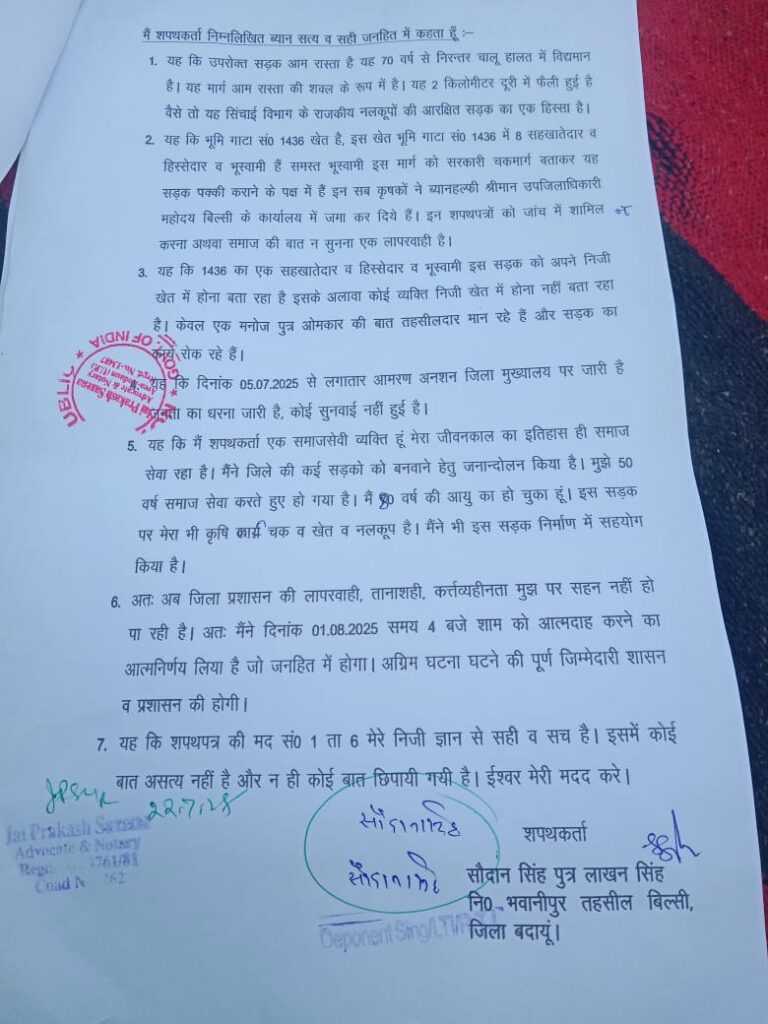 मैं शपथकर्ता निम्नलिखित ब्यान सत्य व सही जनहित में कहता हूँ :–
1. यह कि उपरोक्त सड़क आम रास्ता है यह 70 वर्ष से निरन्तर चालू हालत में विद्यमान
है। यह मार्ग आम रास्ता की शक्ल के रूप में है। यह 2 किलोमीटर दूरी में फैली हुई है
वैसे तो यह सिंचाई विभाग के राजकीय नलकूपों की आरक्षित सड़क का एक हिस्सा है।
2. यह कि भूमि गाटा सं0 1436 खेत है, इस खेत भूमि गाटा सं0 1436 में 8 सहखातेदार व
हिस्सेदार व भूस्वामी हैं समस्त भूस्वामी इस मार्ग को सरकारी चकमार्ग बताकर यह
सड़क पक्की कराने के पक्ष में हैं इन सब कृषकों ने ब्यानहल्फी श्रीमान उपजिलाधिकारी
महोदय बिल्सी के कार्यालय में जमा कर दिये हैं। इन शपथपत्रों को जांच में शामिल न
करना अथवा समाज की बात न सुनना एक लापरवाही है।
3. यह कि 1436 का एक सहखातेदार व हिस्सेदार व भूस्वामी इस सड़क को अपने निजी
खेत में होना बता रहा है इसके अलावा कोई व्यक्ति निजी खेत में होना नहीं बता रहा
है। केवल एक मनोज पुत्र ओमकार की बात तहसीलदार मान रहे हैं और सड़क का
कार्य रोक रहे हैं।
4. यह कि दिनांक 05.07.2025 से लगातार आमरण अनशन जिला मुख्यालय पर जारी है
जनता का धरना जारी है, कोई सुनवाई नहीं हुई है।
GOVT. OF INDIA
Jai Prakash Saxena
Advocate & Notary
5. यह कि मैं शपथकर्ता एक समाजसेवी व्यक्ति हूं मेरा जीवनकाल का इतिहास ही समाज
सेवा रहा है। मैंने जिले की कई सड़को को बनवाने हेतु जनान्दोलन किया है। मुझे 50
वर्ष समाज सेवा करते हुए हो गया है। मैं 80 वर्ष की आयु का हो चुका हूं। इस सड़क
पर मेरा भी कृषि कार्य चक व खेत व नलकूप है। मैंने भी इस सड़क निर्माण में सहयोग
किया है।
6. अतः अब जिला प्रशासन की लापरवाही, तानाशही, कर्त्तव्यहीनता मुझ पर सहन नहीं हो
पा रही है। अतः मैंने दिनांक 01.08.2025 समय 4 बजे शाम को आत्मदाह करने का
आत्मनिर्णय लिया है जो जनहित में होगा। अग्रिम घटना घटने की पूर्ण जिम्मेदारी शासन
व प्रशासन की होगी।
7. यह कि शपथपत्र की मद सं0 1 ता 6 मेरे निजी ज्ञान से सही व सच है। इसमें कोई
बात असत्य नहीं है और न ही कोई बात छिपायी गयी है। ईश्वर मेरी मदद करे।
22.7.25
Jai Prakash Saxena
Advocate & Notary
सौदान सिंह
सौदान सिंह
शपथकर्ता
सौदान सिंह पुत्र लाखन सिंह
नि0 भवानीपुर तहसील बिल्सी,
जिला बदायूं।